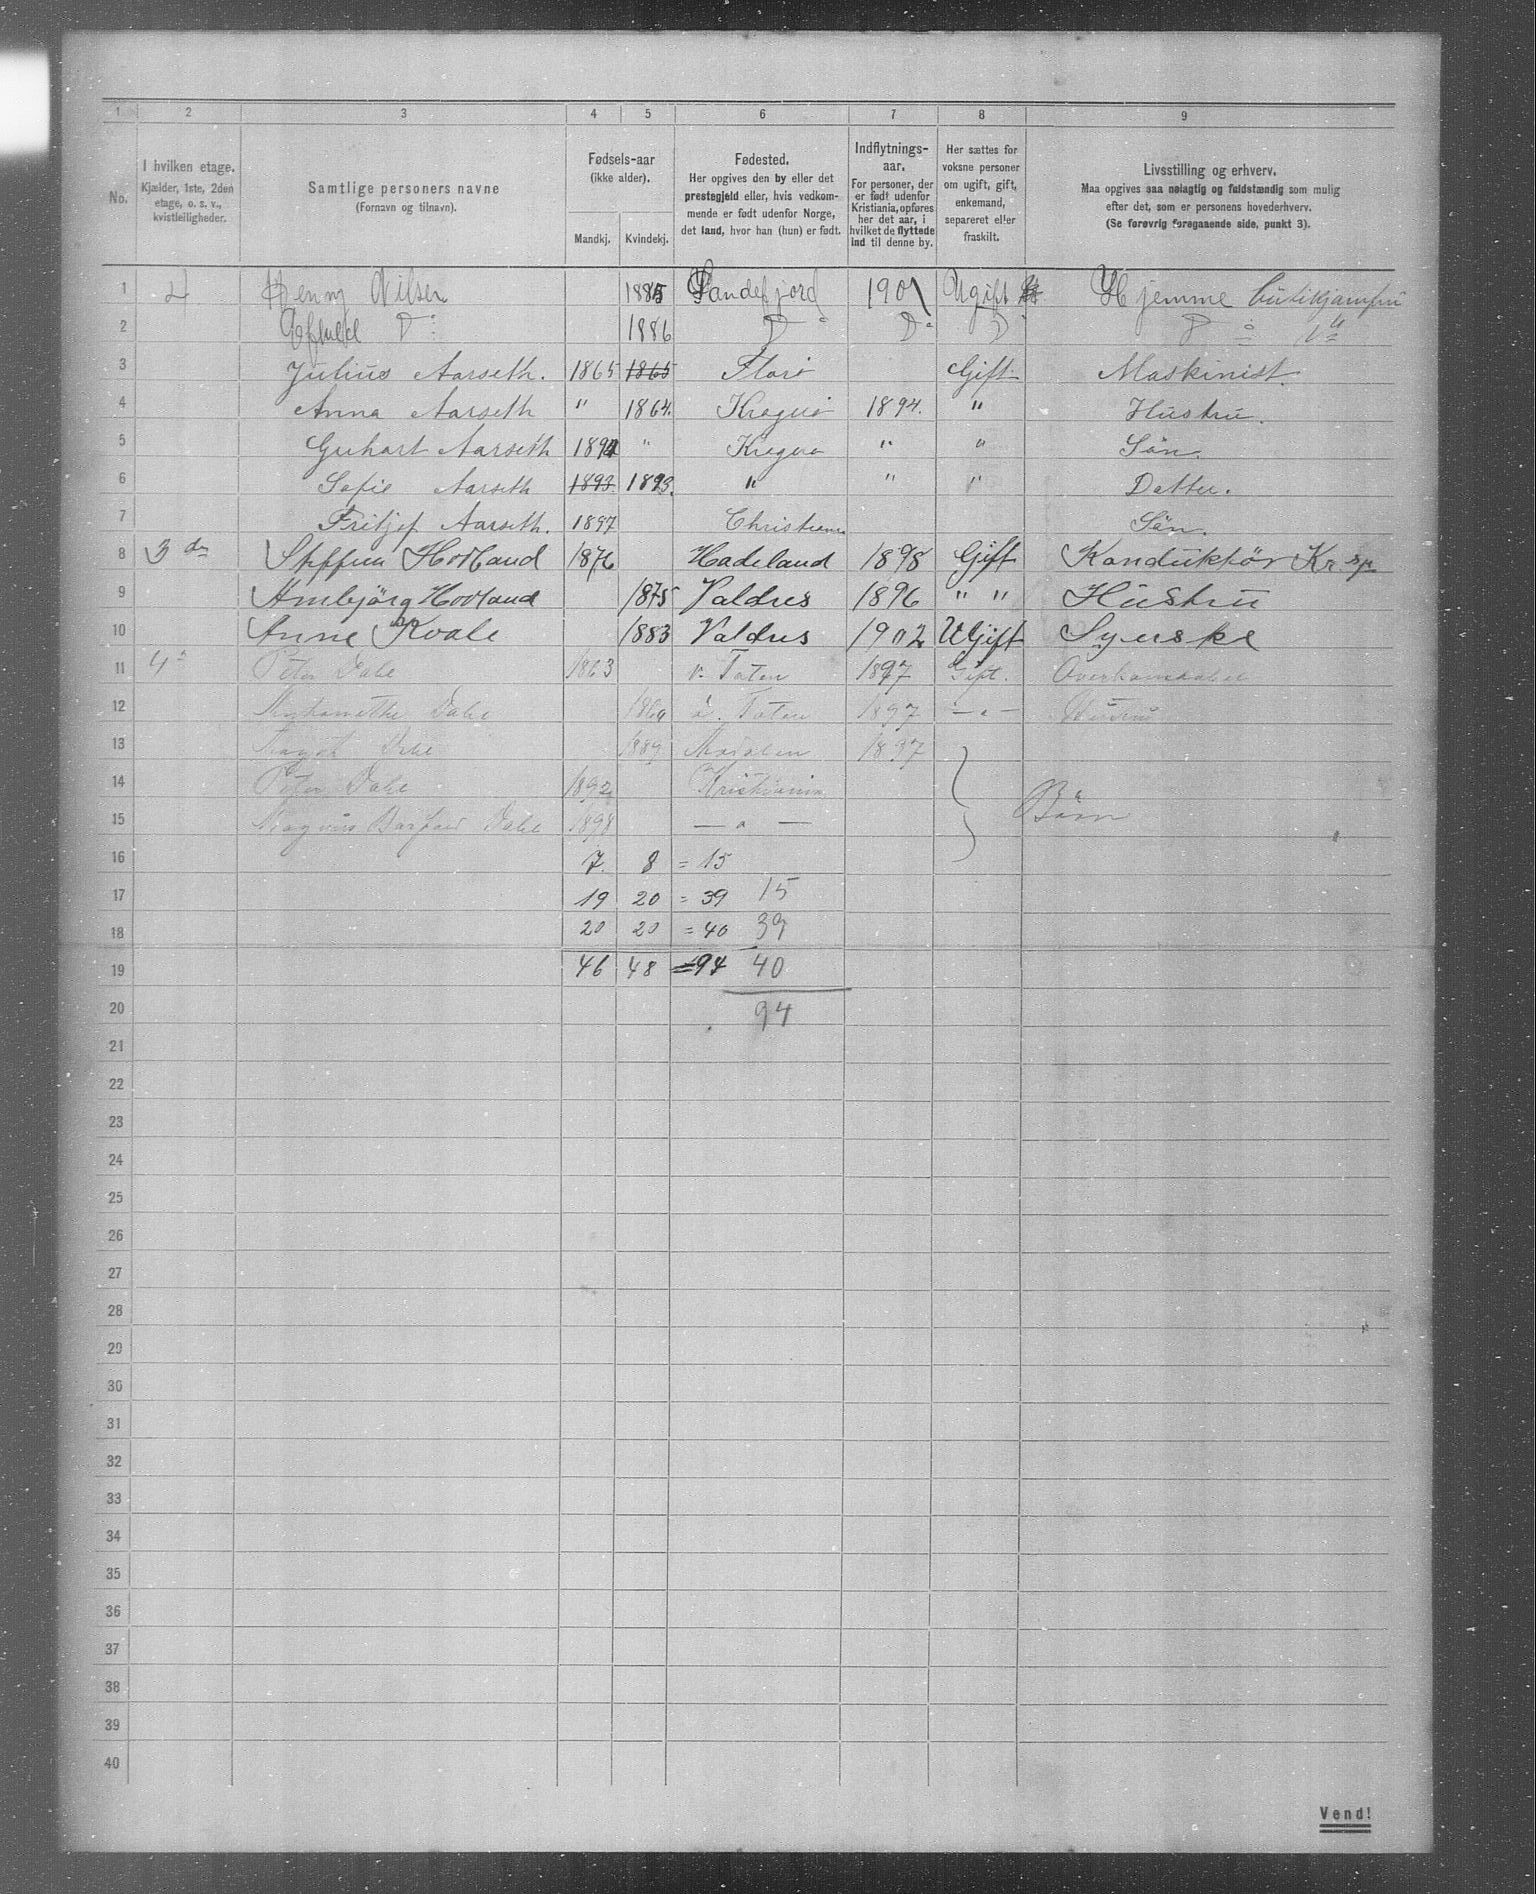 1 2 3 4 5 6 7 8 9
No.
I hvilken etage.
Kjælder, 1ste, 2den
etage, o. s. v.,
kvistleiligheder.
Samtlige personers navne
(Fornavn og tilnavn).
Fødsels-aar
(ikke alder).
Mandkj. Kvindekj.
Fødested.
Her opgives den by eller det
prestegjeld eller, hvis vedkom-
mende er født udenfor Norge,
det land, hvor han (hun) er født.
Indflytnings-
aar.
For personer, der
er født udenfor
Kristiania, opføres
her det aar, i
hvilket de flyttede
ind til denne by.
Her sættes for
voksne personer
om ugift, gift,
enkemand,
separeret eller
fraskilt.
Livsstilling og erhverv.
Maa opgives saa nøiagtig og fuldstændig som mulig
efter det, som er personens hovederhverv.
(Se forøvrig foregaaende side, punkt 3).
1 2 Henny Nilsen 1885 Sandefjord 1901 Ugift Hjemme
2 D: 1886 D: D: D: D:
3 Julius Aarseth. 1865 1865 Florø Gift Maskinist.
4 Anna Aarseth " 1864. Kragerø 1894. " Hustru.
5 Aarseth 1891 " Kragerø " " Sön.
6 Sofie Aarseth 1893 1893. " " " Datter.
7 Fritjof Aarseth. 1897 Christiania Sön.
8 3 die Steffen Hovland 1876 Hadeland 1898 Gift Konduktör Kr. sp
9 Ambjörg Hovland 1875 Valdres 1896 " " Hustru
10 Anne Kvale 1883 Valdres 1902 UGift Syerske
11 4 Peter Dahl 1863 v. Toten 1897 Gift.
12 Dahl ö. Toten 1897 — " — Hustru
13 Dahl 1889 1897
14 Peter Dahl 1892 Kristiania
15 Magnus Dahl 1898 — " — Börn
16 7. 8 = 15
17 19 20 = 39 15
18 20 20 = 40 39
19 46 48 = 94 40
20 94
21
22
23
24
25
26
27
28
29
30
31
32
33
34
35
36
37
38
39
40
Vend!